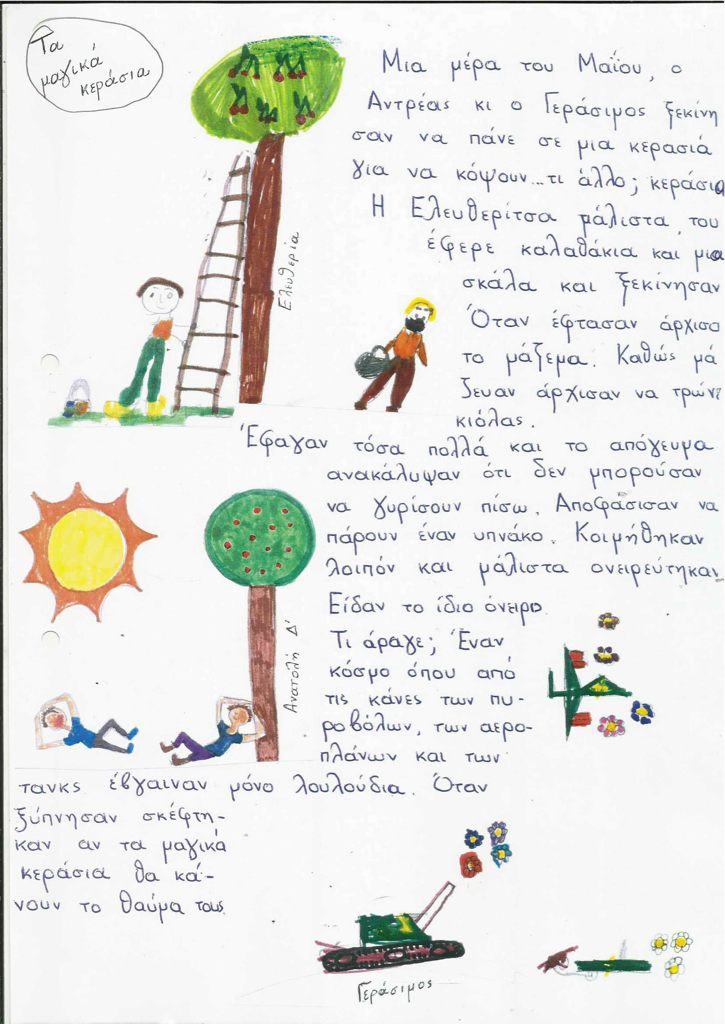 Τα
μαγικά
κεράσια
Μια μέρα του Μαΐου, ο
Αντρέας κι ο Γεράσιμος ξεκίνη
σαν να πάνε σε μια κερασιά
για να κόψουν...τι άλλο; κεράσια
Η Ελευθερίτσα μάλιστα του
έφερε καλαθάκια και μια
σκάλα και ξεκίνησαν
Όταν έφτασαν άρχισα
το μάζεμα. Καθώς μά
ζευαν άρχισαν να τρών
κιόλας.
Έφαγαν τόσα πολλά και το απόγευμα
ανακάλυψαν ότι δεν μπορούσαν
να γυρίσουν πίσω. Αποφάσισαν να
πάρουν έναν υπνάκο. Κοιμήθηκαν
λοιπόν και μάλιστα ονειρεύτηκαν
Είδαν το ίδιο όνειρο
Τι άραγε; Έναν
κόσμο όπου από
τις κάνες των πυ-
ροβόλων, των αερο-
πλάνων και των
τανκς έβγαιναν μόνο λουλούδια. Όταν
ξύπνησαν σκέφτη-
καν αν τα μαγικά
κεράσια θα κά-
νουν το θαύμα τους.
Ελευθερία
Ανατολή Δ'
Γεράσιμος